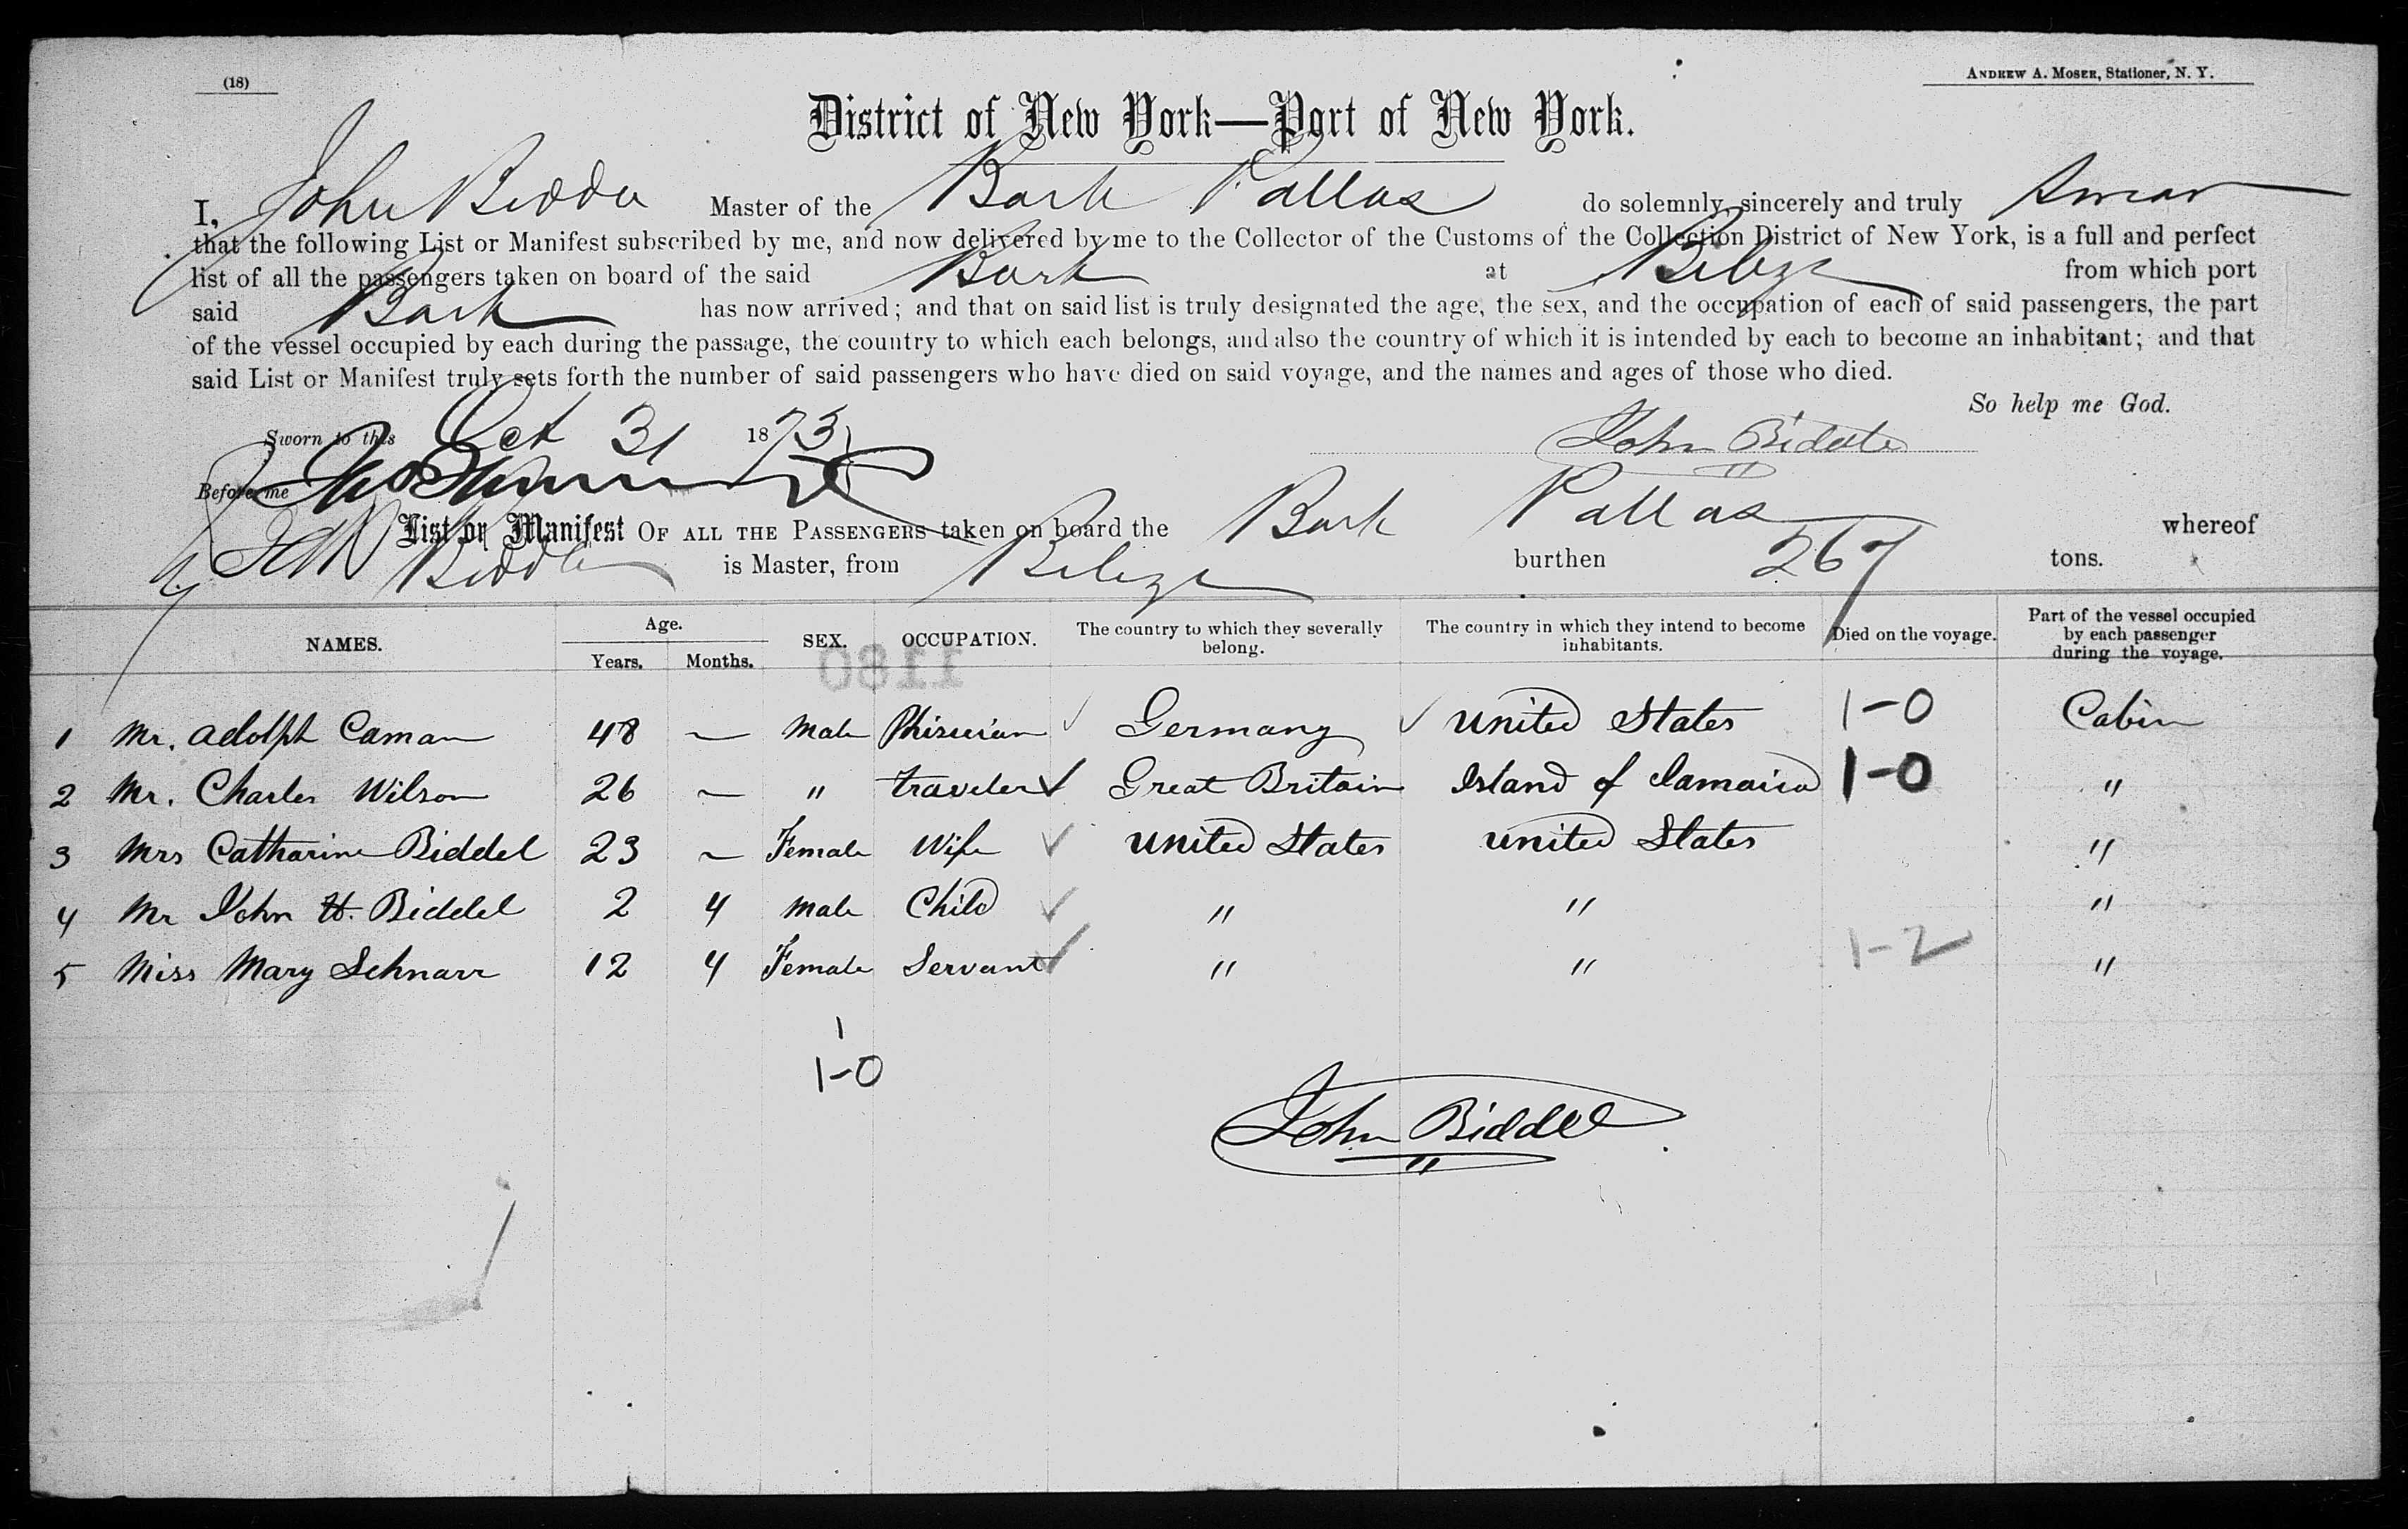 (18)
ANDREW A. MOSER, Stationer, N. Y.
District of New York—Port of New York.
I, John Biddle Master of the Bark Pallas do solemnly, sincerely and truly Swear
that the following List or Manifest subscribed by me, and now delivered by me to the Collector of the Customs of the Collection District of New York, is a full and perfect
list of all the passengers taken on board of the said Bark at Belize from which port
said Bark has now arrived; and that on said list is truly designated the age, the sex, and the occupation of each of said passengers, the part
of the vessel occupied by each during the passage, the country to which each belongs, and also the country of which it is intended by each to become an inhabitant; and that
said List or Manifest truly sets forth the number of said passengers who have died on said voyage, and the names and ages of those who died.
So help me God.
Sworn to this Oct 31 1873
John Biddle
Before me
List or Manifest OF ALL THE PASSENGERS taken on board the Bark Pallas whereof
Biddle is Master, from Belize burthen 267 tons.
NAMES. Age. Years. Months. SEX. OCCUPATION. The country to which they severally belong. The country in which they intend to become inhabitants. Died on the voyage. Part of the vessel occupied by each passenger during the voyage.
1180
1 Mr. Adolph Caman 48 — Male Phisician Germany United States 1-0 Cabin
2 Mr. Charles Wilson 26 — " traveler Great Britain Island of Jamaica 1-0 "
3 Mrs Catharine Biddel 23 — Female Wife United States United States "
4 Mr John H. Biddel 2 4 Male Child " " "
5 Miss Mary Schnarr 12 4 Female Servant " " 1-2 "
1
1-0
John Biddel